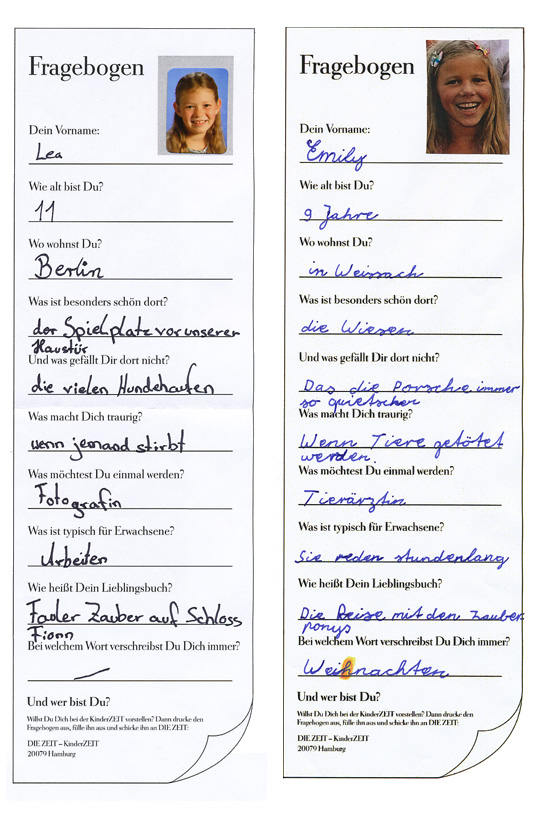 Fragebogen
Dein Vorname:
Lea
Wie alt bist Du?
11
Wo wohnst Du?
Berlin
Was ist besonders schön dort?
der Spielplatz vor unserer
Haustür
Und was gefällt Dir dort nicht?
die vielen Hundehaufen
Was macht Dich traurig?
wenn jemand stirbt
Was möchtest Du einmal werden?
Fotografin
Was ist typisch für Erwachsene?
Arbeiten
Wie heißt Dein Lieblingsbuch?
Fauler Zauber auf Schloss
Fionn
Bei welchem Wort verschreibst Du Dich immer?
Und wer bist Du?
Willst Du Dich bei der KinderZEIT vorstellen? Dann drucke den
Fragebogen aus, fülle ihn aus und schicke ihn an DIE ZEIT:
DIE ZEIT – KinderZEIT
20079 Hamburg
Fragebogen
Dein Vorname:
Emily
Wie alt bist Du?
9 Jahre
Wo wohnst Du?
in Weissach
Was ist besonders schön dort?
die Wiesen
Und was gefällt Dir dort nicht?
Das die Porsche immer
so quietschen
Was macht Dich traurig?
Wenn Tiere getötet
werden.
Was möchtest Du einmal werden?
Tierärztin
Was ist typisch für Erwachsene?
Sie reden stundenlang
Wie heißt Dein Lieblingsbuch?
Die Reise mit den Zauber
ponys
Bei welchem Wort verschreibst Du Dich immer?
Weihnachten
Und wer bist Du?
Willst Du Dich bei der KinderZEIT vorstellen? Dann drucke den
Fragebogen aus, fülle ihn aus und schicke ihn an DIE ZEIT:
DIE ZEIT – KinderZEIT
20079 Hamburg